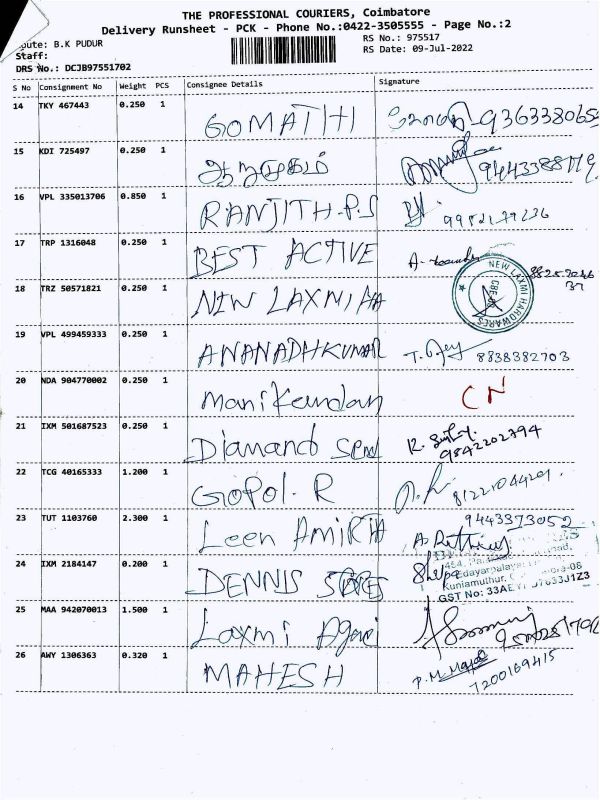 THE PROFESSIONAL COURIERS, Coimbatore
Delivery Runsheet - PCK - Phone No.:0422-3505555 - Page No.:2
oute: B.K PUDUR
RS No.: 975517
Staff:
RS Date: 09-Jul-2022
DRS No.: DCJB97551702
S No Consignment No Weight PCS Consignee Details Signature
14 TKY 467443 0.250 1 GOMATHI
15 KDI 725497 0.250 1 ஆறுமுகம்
16 VPL 335013706 0.850 1 RANJITH.P.S
17 TRP 1316048 0.250 1 BEST ACTIVE
18 TRZ 50571821 0.250 1 NEW LAXMI HA
NEW LAXMI HARDWARES
19 VPL 499459333 0.250 1 ANANADHKUMAR 8838382703
20 NDA 904770002 0.250 1 Manikandan CN
21 IXM 501687523 0.250 1 Diamand Send 9842202794
22 TCG 40165333 1.200 1 GOPOL. R
23 TUT 1103760 2.300 1 Leen AMIRTA 9443373052
24 IXM 2184147 0.200 1 DENNIS STORES
Kuniamuthur,
GST No: 33AE
25 MAA 942070013 1.500 1 Laxmi Agani
26 AWY 1306363 0.320 1 MAHESH 7200169415